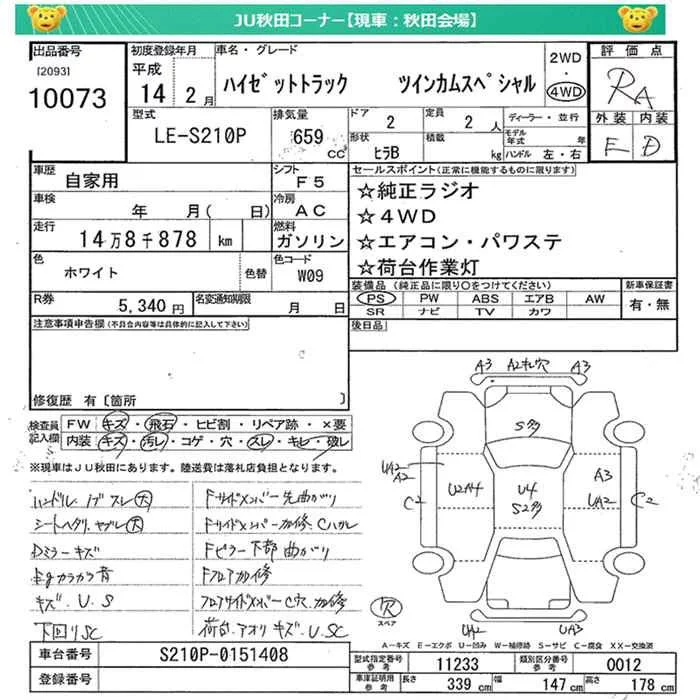 JU秋田コーナー【現車：秋田会場】
出品番号
[2093]
10073
初度登録年月
平成
14年 2月
車名・グレード
ハイゼットトラック ツインカムスペシャル
2WD
・
4WD
評価点
RA
外装 内装
E D
型式
LE-S210P
排気量
659
CC
ドア
2
定員
2 人
形状
ヒラB
積載
kg
ディーラー・並行
モデル年式 年
ハンドル 左・右
車歴
自家用
シフト
F5
車検
年 月( 日)
冷房
AC
走行
14万8千878 km
燃料
ガソリン
色
ホワイト
色替
色コード
W09
R券
5,340 円
名変通知期限
月 日
セールスポイント(正常に機能するものに限ります)
☆純正ラジオ
☆4WD
☆エアコン・パワステ
☆荷台作業灯
装備品 (純正品に限り○をつけてください)
PS PW ABS エアB AW
SR ナビ TV カワ
新車保証書
有・無
後日品
注意事項申告欄(不具合内容等は具体的に記入して下さい)
修復歴 有 [箇所 ]
検査員記入欄
FW キズ・飛石・ヒビ割・リペア跡・×要
内装 キズ・汚レ・コゲ・穴・スレ・キレ・破レ
※現車はJU秋田にあります。陸送費は落札店負担となります。
ハンドル.ノブスレ大
シートヘタリ.ヤブレ大
Dミラーキズ
Egカラカラ音
キズ.U.S
下回りSC
Fサイドメンバー先曲がり
Fサイドメンバー加修.Cハガレ
Fピラー下部曲がり
Fフロア加修
フロアサイドメンバーC穴.加修
荷台.アオリキズ.U.SC
A3 A2ネジ穴 A3
S多
UA2
A2
C2
U2A4
U4
S2多
A3
UA2
C2
UA2
UA3
R
スペア
A－キズ E－エクボ U－凹み W－補修跡 S－サビ C－腐食 XX－交換済
車台番号
S210P-0151408
登録番号
型式指定番号
参考
11233
類別区分番号
参考
0012
車庫証明用
参考
長さ 339 cm
幅 147 cm
高さ 178 cm